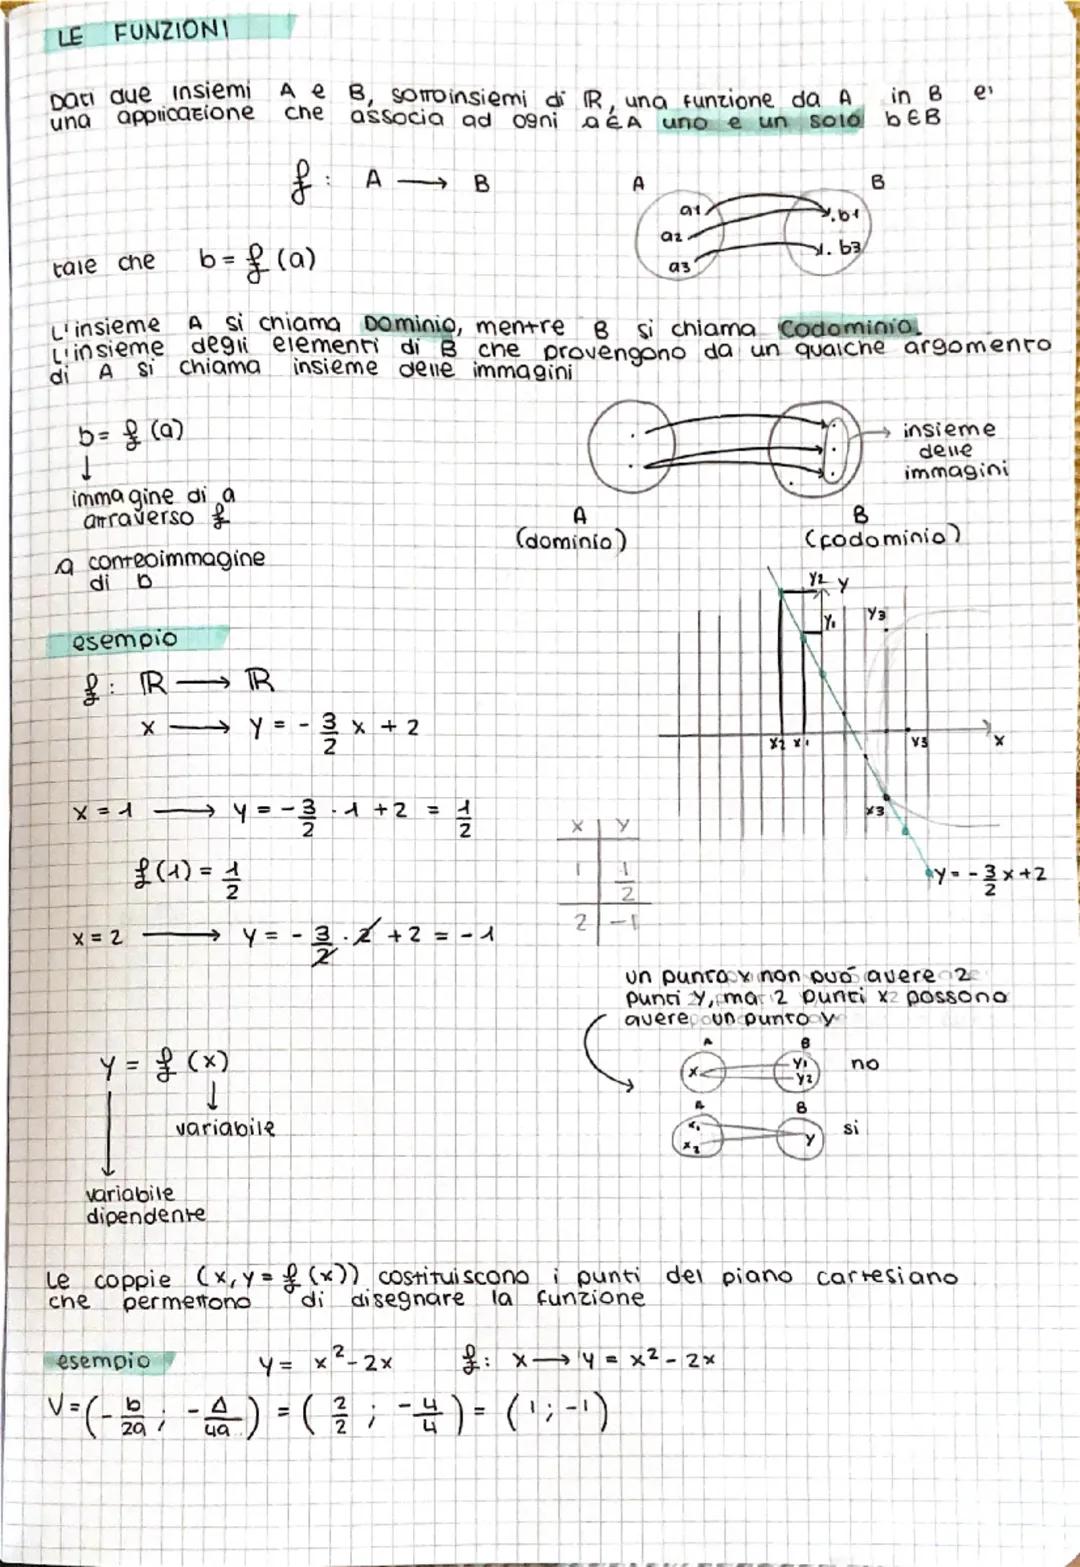 LE FUNZIONI
Dati due insiemi A e B, sottoinsiemi di ℝ, una funzione da A in B e'
una applicazione che associa ad ogni a∈A uno e un solo b∈B
f: A ⟶ B
A B
a1 a2 a3
.b1 . b3
tale che b = f (a)
L'insieme A si chiama Dominio, mentre B si chiama Codominio.
L'insieme degli elementi di B che provengono da un qualche argomento
di A si chiama insieme delle immagini
b = f (a)
↓
immagine di a
attraverso f
a controimmagine
di b
insieme
delle
immagini
A
(dominio)
B
(codominio)
esempio
f: ℝ ⟶ ℝ
x ⟶ y = - 3/2 x + 2
x = 1 ⟶ y = - 3/2 · 1 + 2 = 1/2
f (1) = 1/2
x = 2 ⟶ y = - 3/2 · 2 + 2 = - 1
x y
1 1/2
2 -1
y2 y
y1 y3
x2 x1 y3 x
x3
y = - 3/2 x + 2
un punto x non può avere 2
punti y, ma 2 punti x possono
avere un punto y
A B
x y1 y2 no
A B
x1 x2 y si
y = f (x)
↓
variabile
variabile
dipendente
Le coppie (x, y = f (x)) costituiscono i punti del piano cartesiano
che permettono di disegnare la funzione
esempio y = x² - 2x f: x ⟶ y = x² - 2x
V = (- b/2a ; - Δ/4a) = (2/2 ; - 4/4) = (1 ; -1)